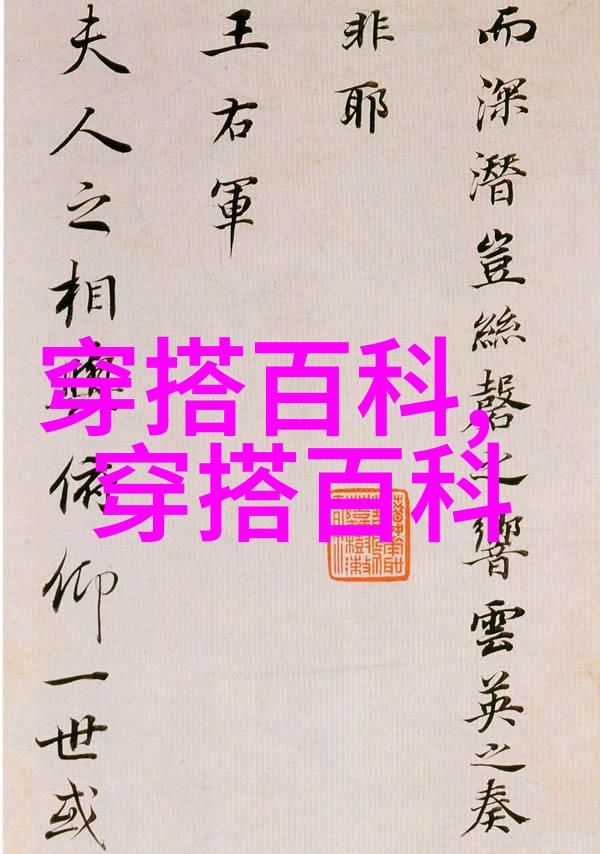 而深潛豈絲磬之響雲英之奏
非耶
王右軍
夫人之相與俯仰一世或
穿搭百科,
穿搭百科